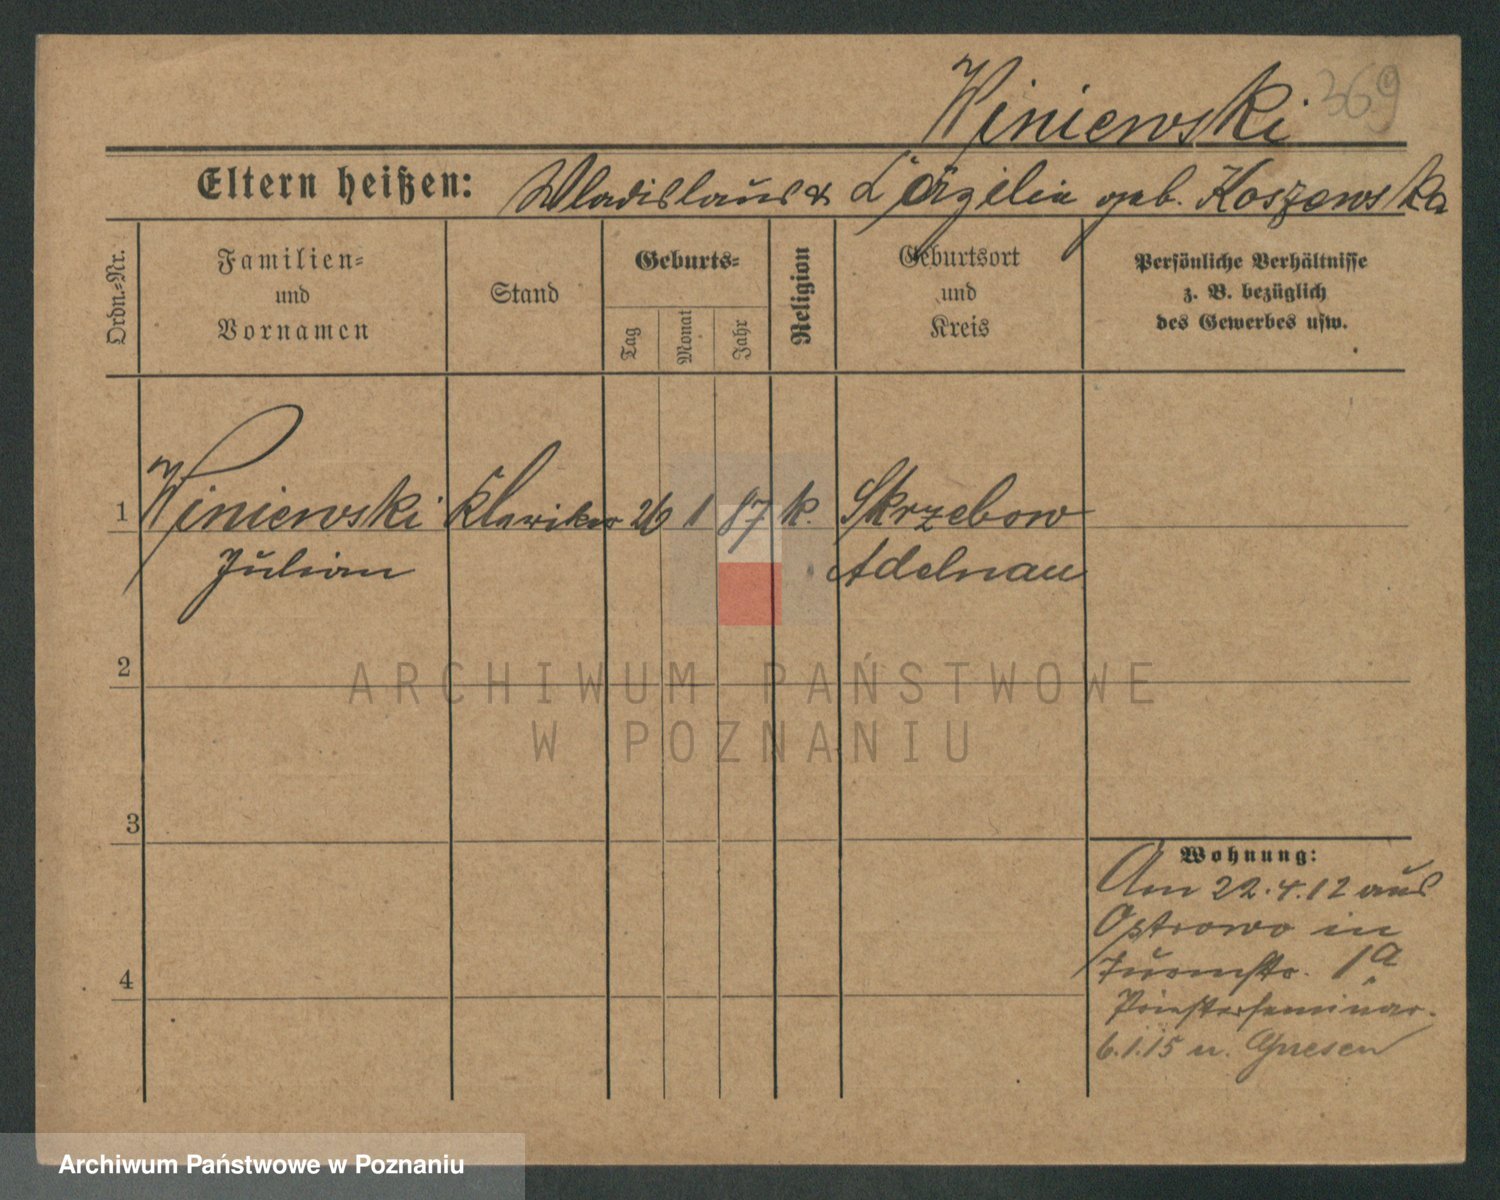 Winiewski 369
Eltern heißen: Wladislaus & Cäzilia geb. Koszewska
Ordn.-Nr.
Familien-
und
Vornamen
Stand
Geburts-
Tag
Monat
Jahr
Religion
Geburtsort
und
Kreis
Persönliche Verhältnisse
z. B. bezüglich
des Gewerbes usw.
1 Winiewski Kleriker 26 1 87 k. Skrzebow
Julian Adelnau
2
ARCHIWUM PAŃSTWOWE
W POZNANIU
3
Wohnung:
Am 22.4.12 aus
Ostrowo in
Turmstr. 1a
4
Priesterseminar.
6.1.15 n. Gnesen
Archiwum Państwowe w Poznaniu